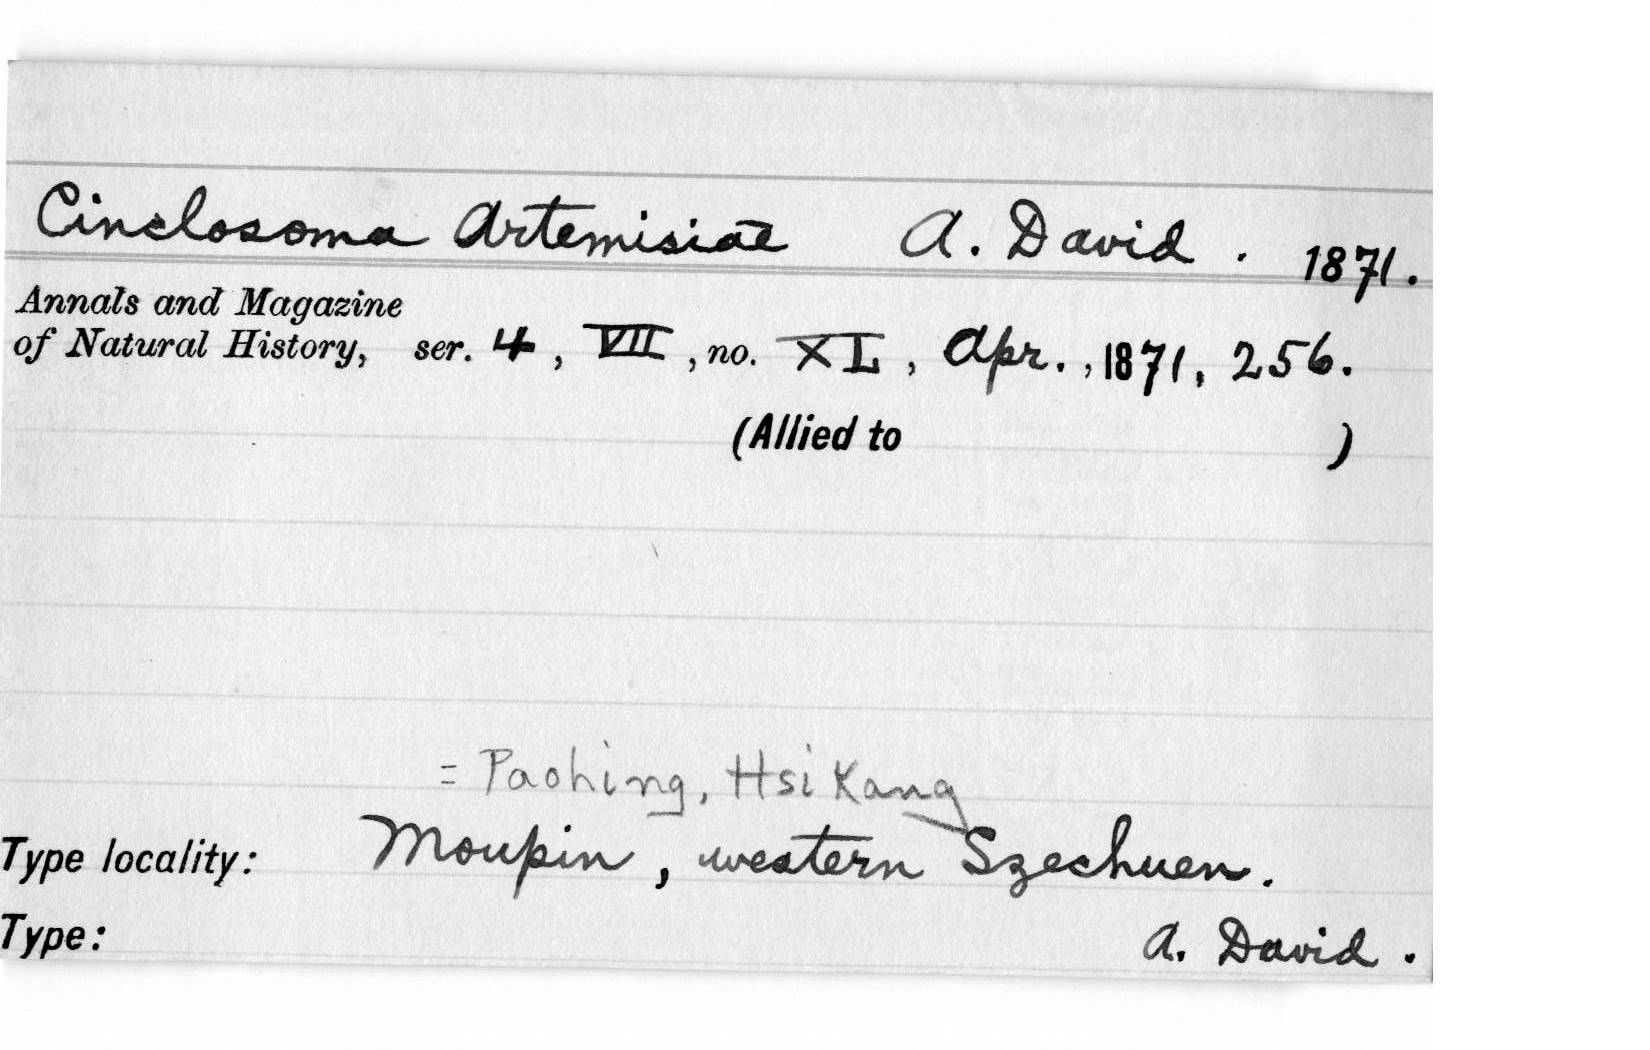 Cinclosoma Artemisiae A. David. 1871.
Annals and Magazine
of Natural History, ser. 4, VII, no. XL, Apr., 1871, 256.
(Allied to )
= Paohing, Hsikang
Type locality: Moupin, western Szechuen.
Type: A. David.